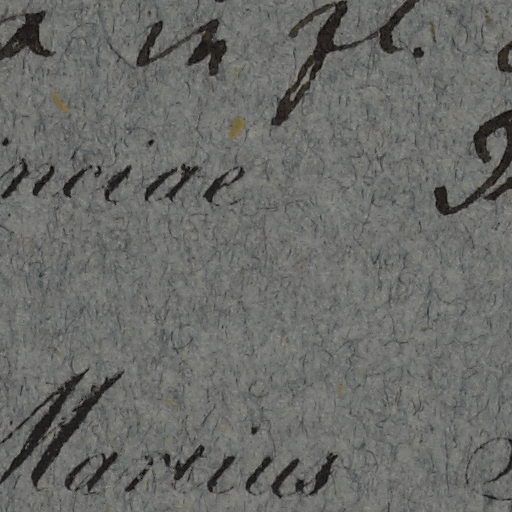 a in fl.
inciae
Martius